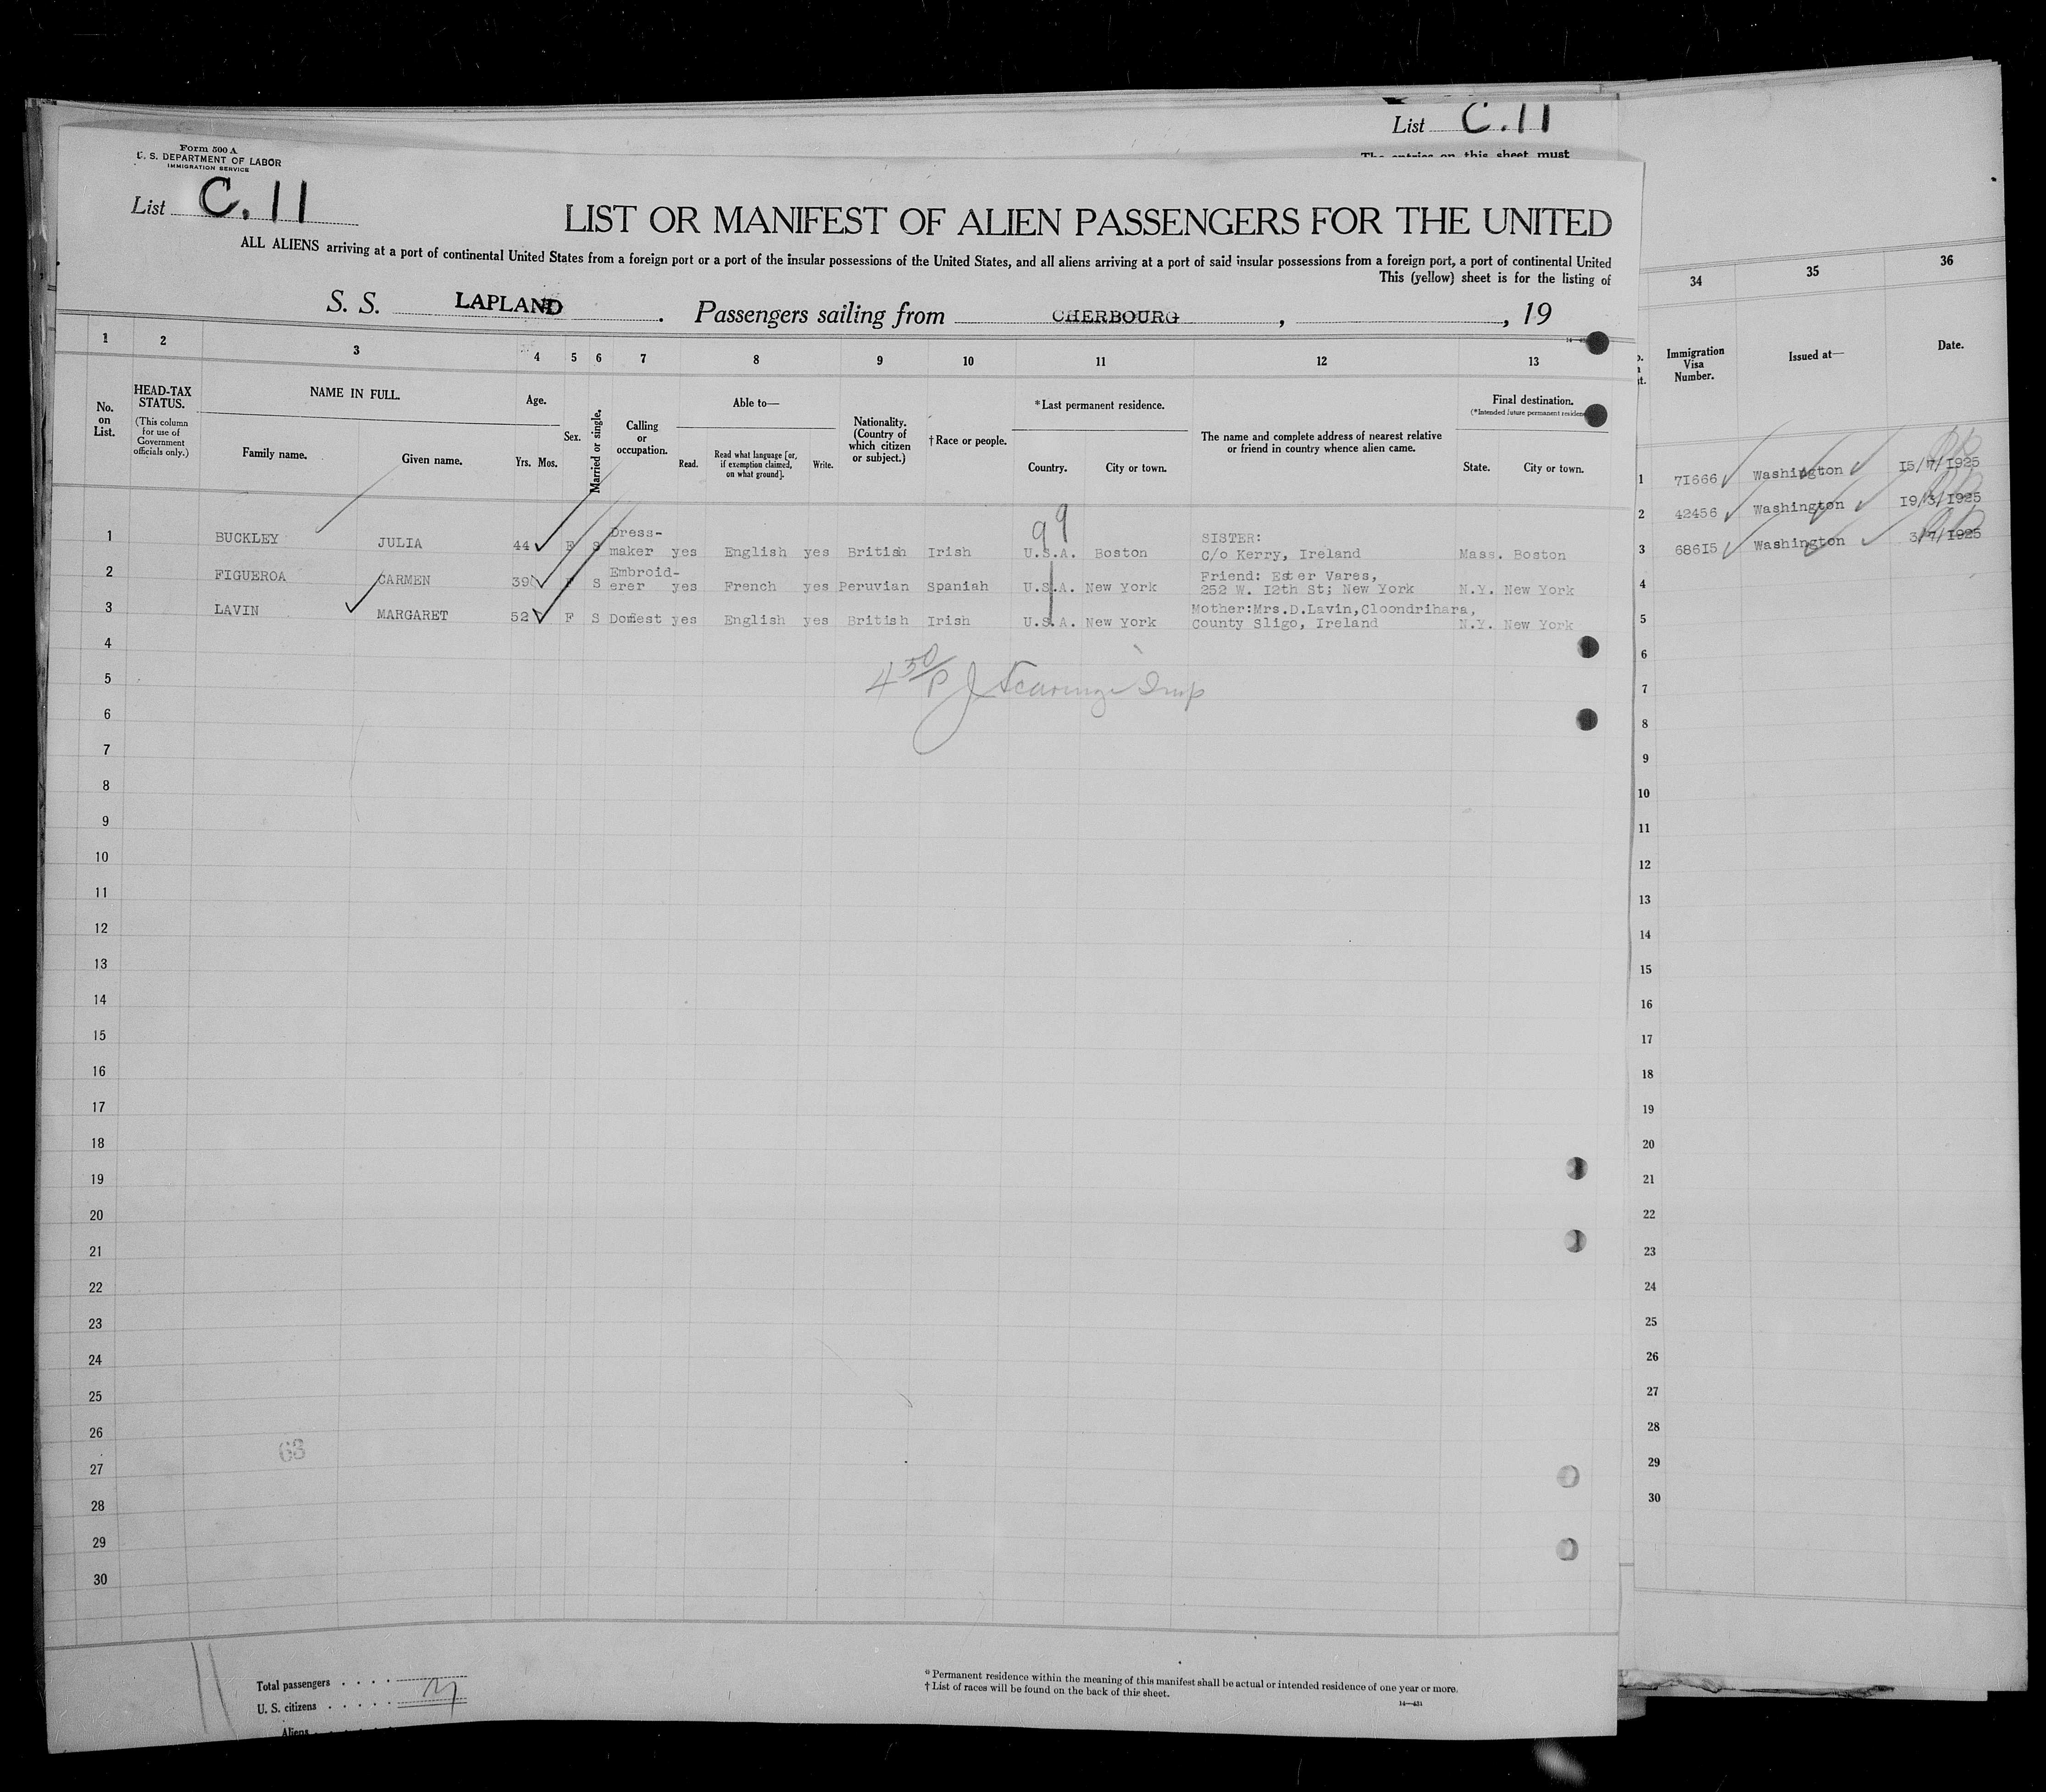 List C.11
The entries on this sheet must
Form 500 A
U. S. DEPARTMENT OF LABOR
IMMIGRATION SERVICE
List C. 11
LIST OR MANIFEST OF ALIEN PASSENGERS FOR THE UNITED
ALL ALIENS arriving at a port of continental United States from a foreign port or a port of the insular possessions of the United States, and all aliens arriving at a port of said insular possessions from a foreign port, a port of continental United
This (yellow) sheet is for the listing of
S. S. LAPLAND. Passengers sailing from CHERBOURG, , 19
1 2 3 4 5 6 7 8 9 10 11 12 13
No. on List.
HEAD-TAX STATUS.
(This column for use of Government officials only.)
NAME IN FULL.
Family name. Given name.
Age.
Yrs. Mos.
Sex.
Married or single.
Calling or occupation.
Able to—
Read. Read what language [or, if exemption claimed, on what ground]. Write.
Nationality. (Country of which citizen or subject.)
†Race or people.
*Last permanent residence.
Country. City or town.
The name and complete address of nearest relative or friend in country whence alien came.
Final destination.
State. City or town.
99
1 BUCKLEY JULIA 44 F S Dress-maker yes English yes British Irish U.S.A. Boston SISTER: C/o Kerry, Ireland Mass. Boston
2 FIGUEROA CARMEN 39 F S Embroid-erer yes French yes Peruvian Spaniah U.S.A. New York Friend: Ester Vares, 252 W. I2th St; New York N.Y. New York
3 LAVIN MARGARET 52 F S Domest yes English yes British Irish U.S.A. New York Mother:Mrs.D.Lavin,Cloondrihara, County Sligo, Ireland N.Y. New York
4
5
6
7
8
9
10
11
12
13
14
15
16
17
18
19
20
21
22
23
24
25
26
27
28
29
30
63
Total passengers
U. S. citizens
Aliens
* Permanent residence within the meaning of this manifest shall be actual or intended residence of one year or more.
† List of races will be found on the back of this sheet.
34 35 36
Immigration Visa Number. Issued at— Date.
1 7I666 Washington I5/7/I925
2 42456 Washington I9/3/I925
3 686I5 Washington 3/7/I925
4
5
6
7
8
9
10
11
12
13
14
15
16
17
18
19
20
21
22
23
24
25
26
27
28
29
30